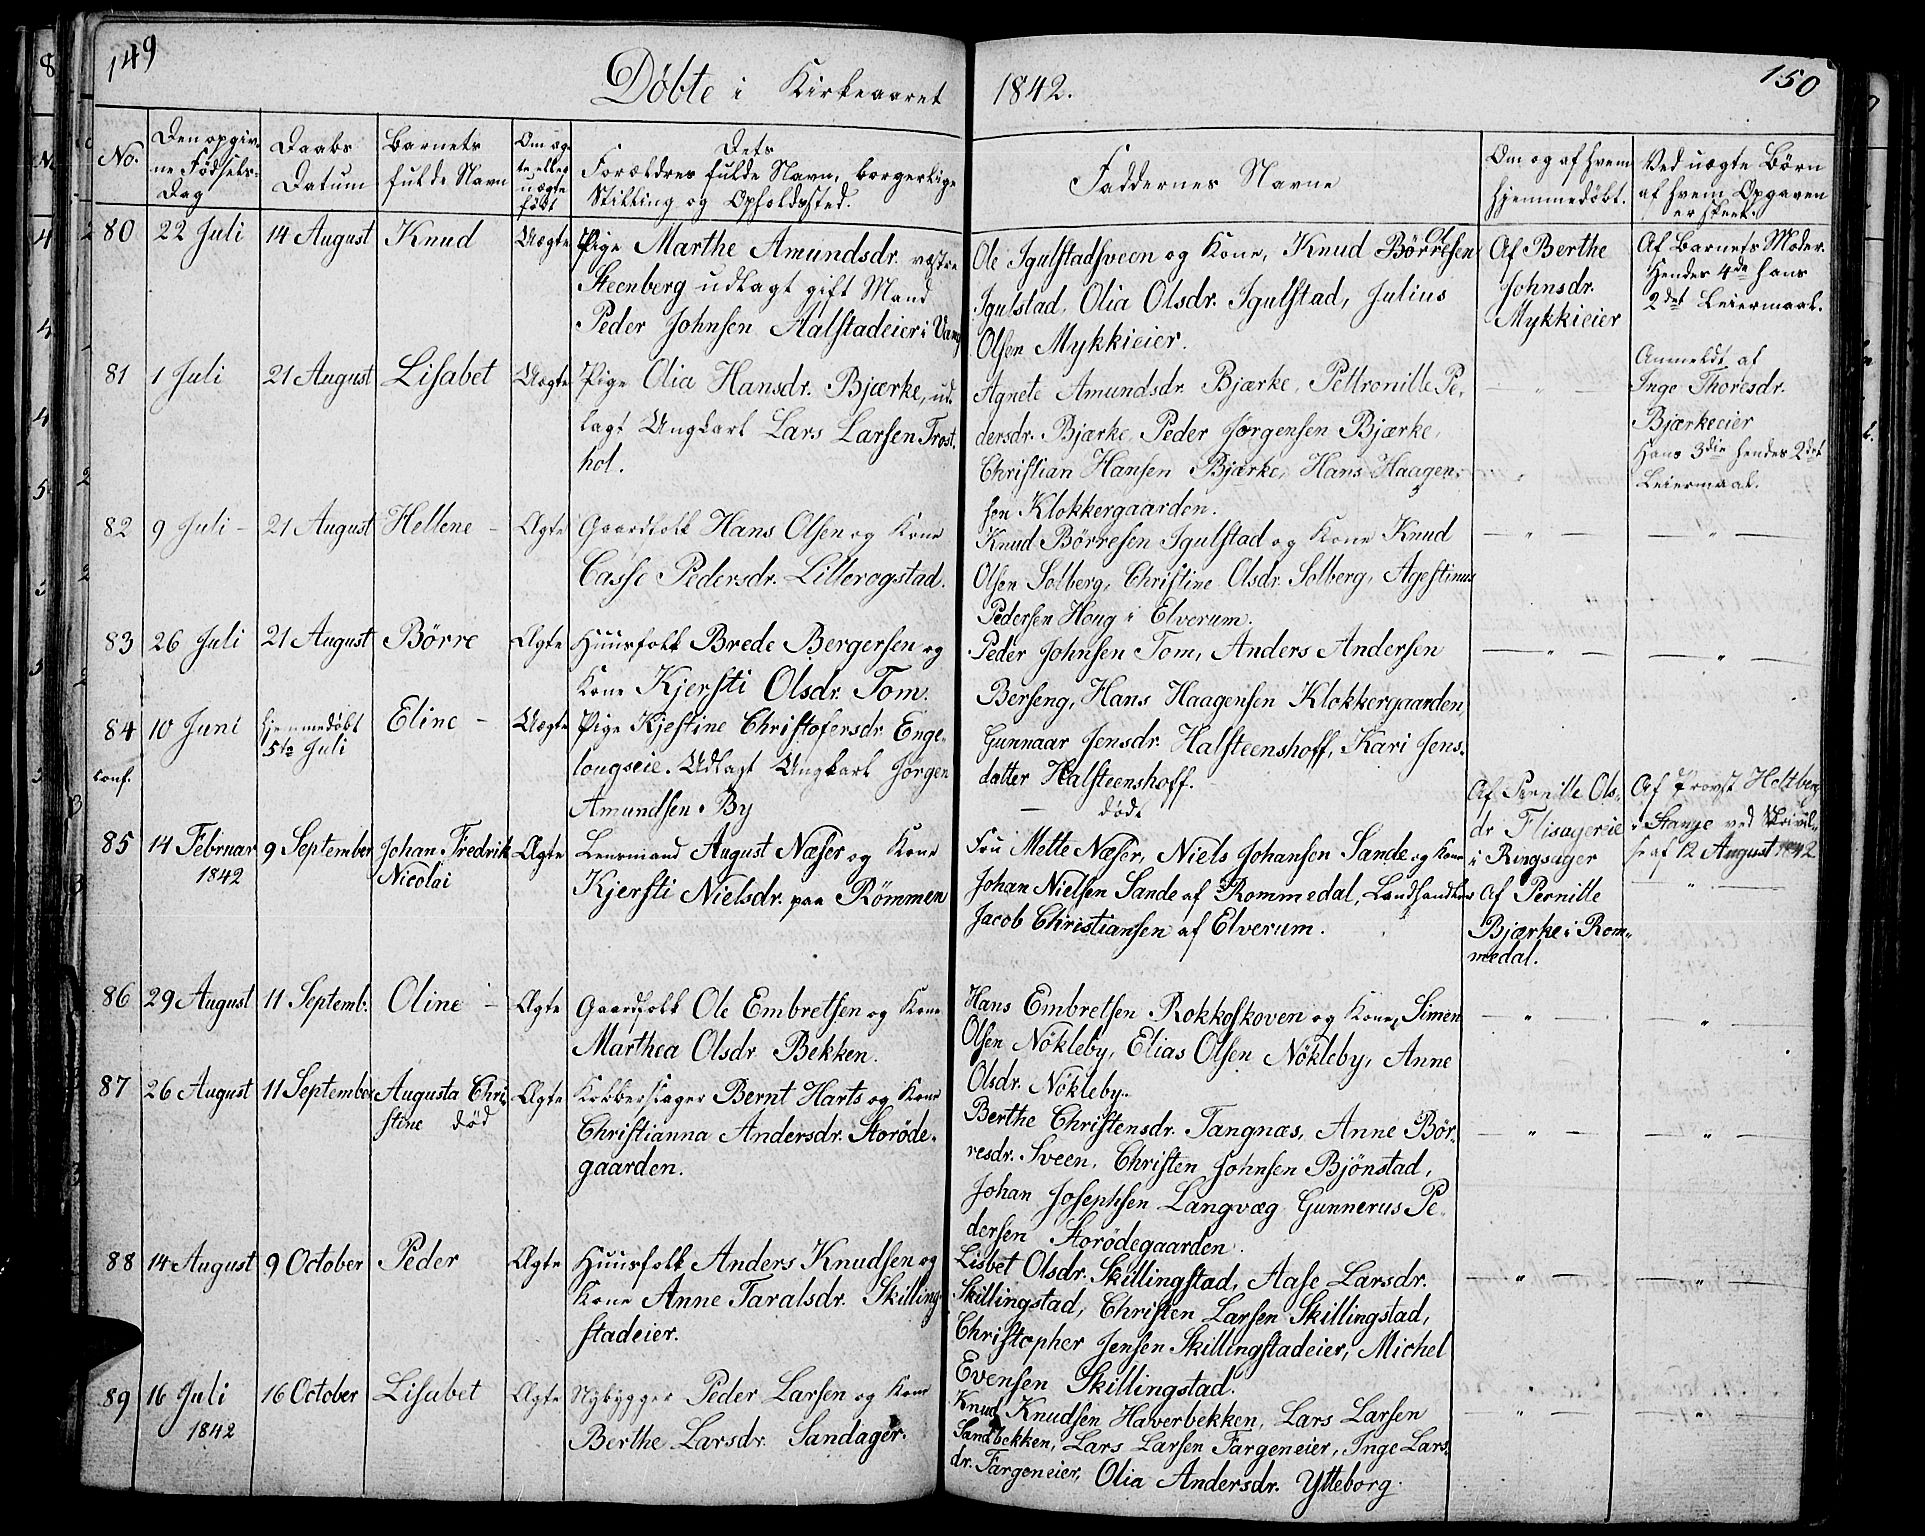 149
Døbte i Kirkeaaret 1842.
150
No.
Den opgiv-
ne Fødsels-
Dag
Daabs
Datum
Barnets
fulde Navn
Om æg-
te eller
uægte
født
Dets
Forældres fulde Navn, borgerlige
Stilling og Opholdssted.
Faddernes Navne
Om og af hvem
hjemmedøbt.
Ved uægte Børn
af hvem Opgaven
er skeet.
80 22 Juli 14 August Knud Uægte Pige Marthe Amundsdr. vestre
Steenberg udlagt gift Mand
Peder Johnsen Aalstadeier i Vang
Ole Igulstadsveen og Kone, Knud Börresen
Igulstad, Olia Olsdr. Igulstad, Julius
Olsen Mykkieier.
Af Berthe
Johnsdr.
Mykkieier
Af Barnets Moder.
Hendes 4de hans
2det Leiermaal.
81 1 Juli 21 August Lisabet Uægte Pige Olia Hansdr. Bjærke, ud-
lagt Ungkarl Lars Larsen Trost-
hol.
Agnete Amundsdr. Bjærke, Pettronille Pe-
dersdr. Bjærke, Peder Jørgensen Bjærke,
Christian Hansen Bjærke, Hans Haagen-
sen Klokkergaarden.
— " —
Anmeldt af
Inge Thoresdr.
Bjærkeeier
Hans 3die hendes 2det
Leiermaal.
82 9 Juli - 21 August Hellene - Ægte Gaardfolk Hans Olsen og Kone
Casse Pedersdr. Lillerogstad.
Knud Börresen Igulstad og Kone Knud
Olsen Solberg, Christine Olsdr. Solberg, Agestinus
Pedersen Houg i Elverum.
— " — — " —
83 26 Juli 21 August Börre Ægte Huusfolk Brede Bergersen og
Kone Kjersti Olsdr. Tom.
Peder Johnsen Tom, Anders Andersen
Berseng, Hans Haagensen Klokkergaarden,
Gunnaar Jensdr. Halsteenshoff, Kari Jens-
datter Halsteenshoff.
— " — — " —
84 10 Juni hjemmedøbt
5te Juli
Eline - Uægte Pige Kjestine Christofersdr. Enge-
lougseie. Udlagt Ungkarl Jørgen
Amundsen By
conf.
— död.
Af Pernille Ols-
dr. Flisagereie
i Ringsager
Af Provst Holtberg
i Stange ved Skrivel-
se af 12 August 1842
85 14 Februar
1842
9 September Johan Fredrik
Nicolai
Ægte Lensmand August Næser og Kone
Kjersti Nielsdr. paa Römmen
Fru Mette Næser, Niels Johansen Sande og Kone
Johan Nielsen Sande af Rommedal, Landhandler
Jacob Christiansen af Elverum.
Af Pernille
Bjærke i Rom-
medal.
— " —
86 29 August 11 Septemb. Oline - Ægte Gaardfolk Ole Embretsen og Kone
Marthea Olsdr. Bekken.
Hans Embretsen Rokkoskoven og Kone, Simen
Olsen Nökleby, Elias Olsen Nökleby, Anne
Olsdr. Nökleby.
— " — — " —
87 26 August 11 September Augusta Chri-
stine død
Ægte Kobberslager Bernt Harts og Kone
Christianna Andersdr. Storöde-
gaarden.
Berthe Christensdr. Tangnæs, Anne Bör-
resdr. Sveen, Christen Johnsen Bjönstad,
Johan Josephsen Langvæg Gunnerus Pe-
dersen Storödegaarden.
— " — — " —
88 14 August 9 October Peder Ægte Huusfolk Anders Knudsen og
Kone Anne Taralsdr. Skilling-
stadeier.
Lisbet Olsdr. Skillingstad, Aase Larsdr.
Skillingstad, Christen Larsen Skillingstad,
Christopher Jensen Skillingstadeier, Michel
Evensen Skillingstad.
— " — — " —
89 16 Juli
1842
16 October Lisabet Ægte Nybygger Peder Larsen og Kone
Berthe Larsdr. Sandager.
Knud Knudsen Haverbekken, Lars Larsen
Sandbekken, Lars Larsen Fargeneier, Inge Lars-
dr. Fargeneier, Olia Andersdr. Ytteborg.
" — "